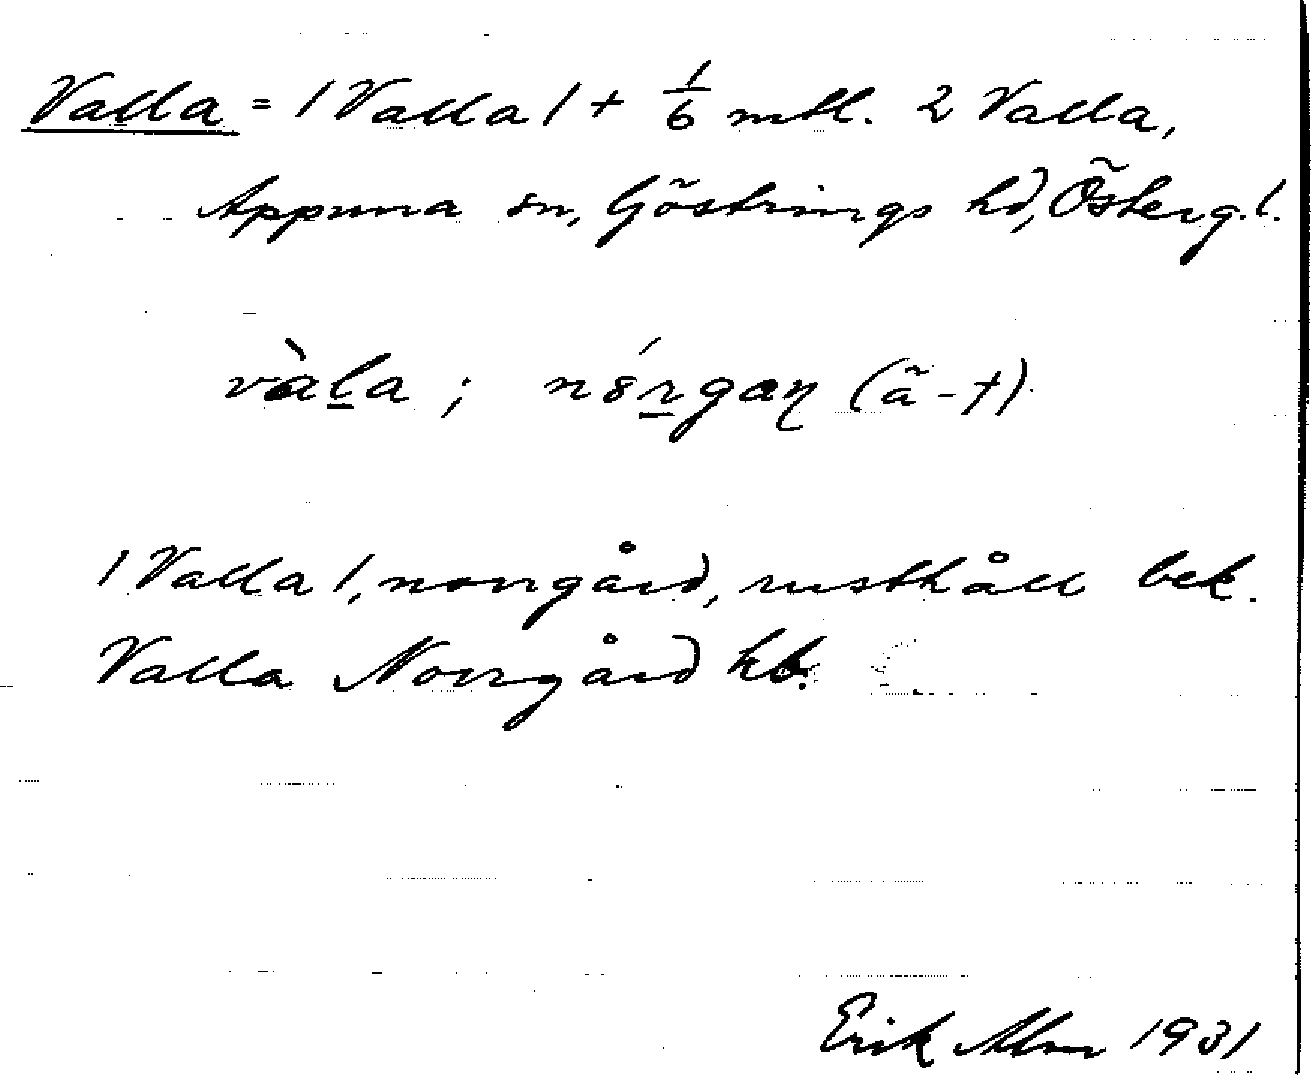 Valla = 1 Valla 1 + 1/6 mtl. 2 Valla,
Appuna sn, Göstrings hd, Österg. l.
vàḻa; nór̲gaɳ (ã-t)
1 Valla 1, norrgård, rusthåll bek.
Valla Norrgård kb.
Erik Abrn 1931